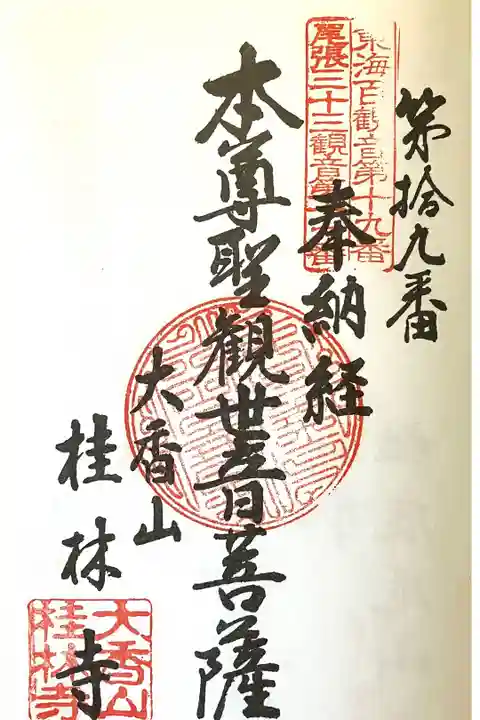 第拾九番
東海百観音第十九番
尾張三十三観音第
番
奉納経
本尊聖観世音菩薩
大香山
桂林寺
大香山
桂林寺